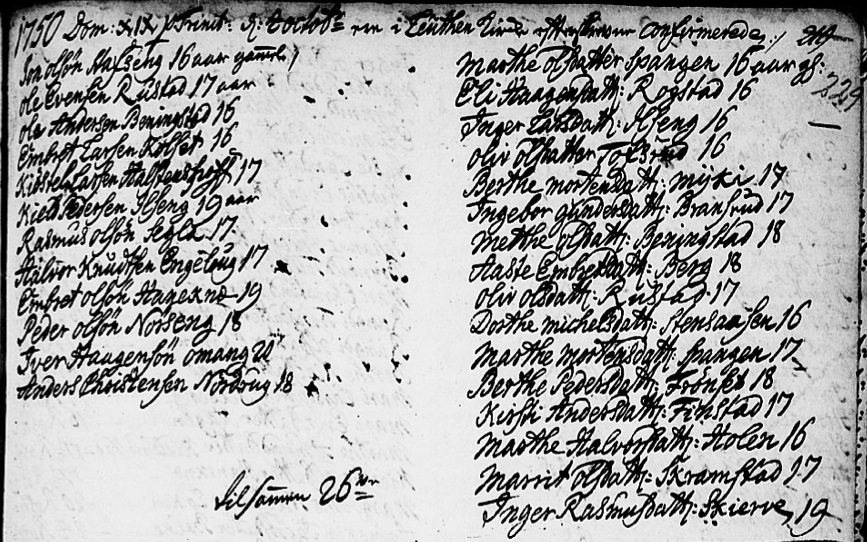 1750 Dom: XIX p Trinit: d: 4 octobr: ere i Løuthen Kirke efterskrevne Confirmerede:/ 219
229
Jon olsön Hafseng 16 aar gamel /
ole Evensen Rustad 17 aar
ole Andersen Beningstad 16
Embret Larsen Kolset 16
Larsen 17
Kield Pedersen Ilseng 19 aar
Rasmus olsön 17
Halvor Knudsen Engeloug 17
Embret olsön 19
Peder olsön Norseng 18
Iver Haagensön omang 21
Anders Christensen Nordoug 18
Tilsamen 26
Marthe olsdatter Spangen 16 aar gl:
Eli Haagensdatt: Rogstad 16
Inger Larsdatt: Ilseng 16
oliv olsdatter 16
Berthe mortensdatt: Myki 17
Ingebor gundersdatt: Bransrud 17
Methe olsdatt: Beningstad 18
Aaste Embretsdatt: Berg 18
oliv olsdatt: Rustad 17
Dorthe michelsdatt: Stensaasen 16
Marthe mortensdatt: Spangen 17
Berthe Pedersdatt: Frönset 18
Kirsti Andersdatt: Finstad 17
Marthe Halvorsdatt: Holen 16
Marrit olsdatt: Skramstad 17
Inger Rasmusdatt: Skierve 19